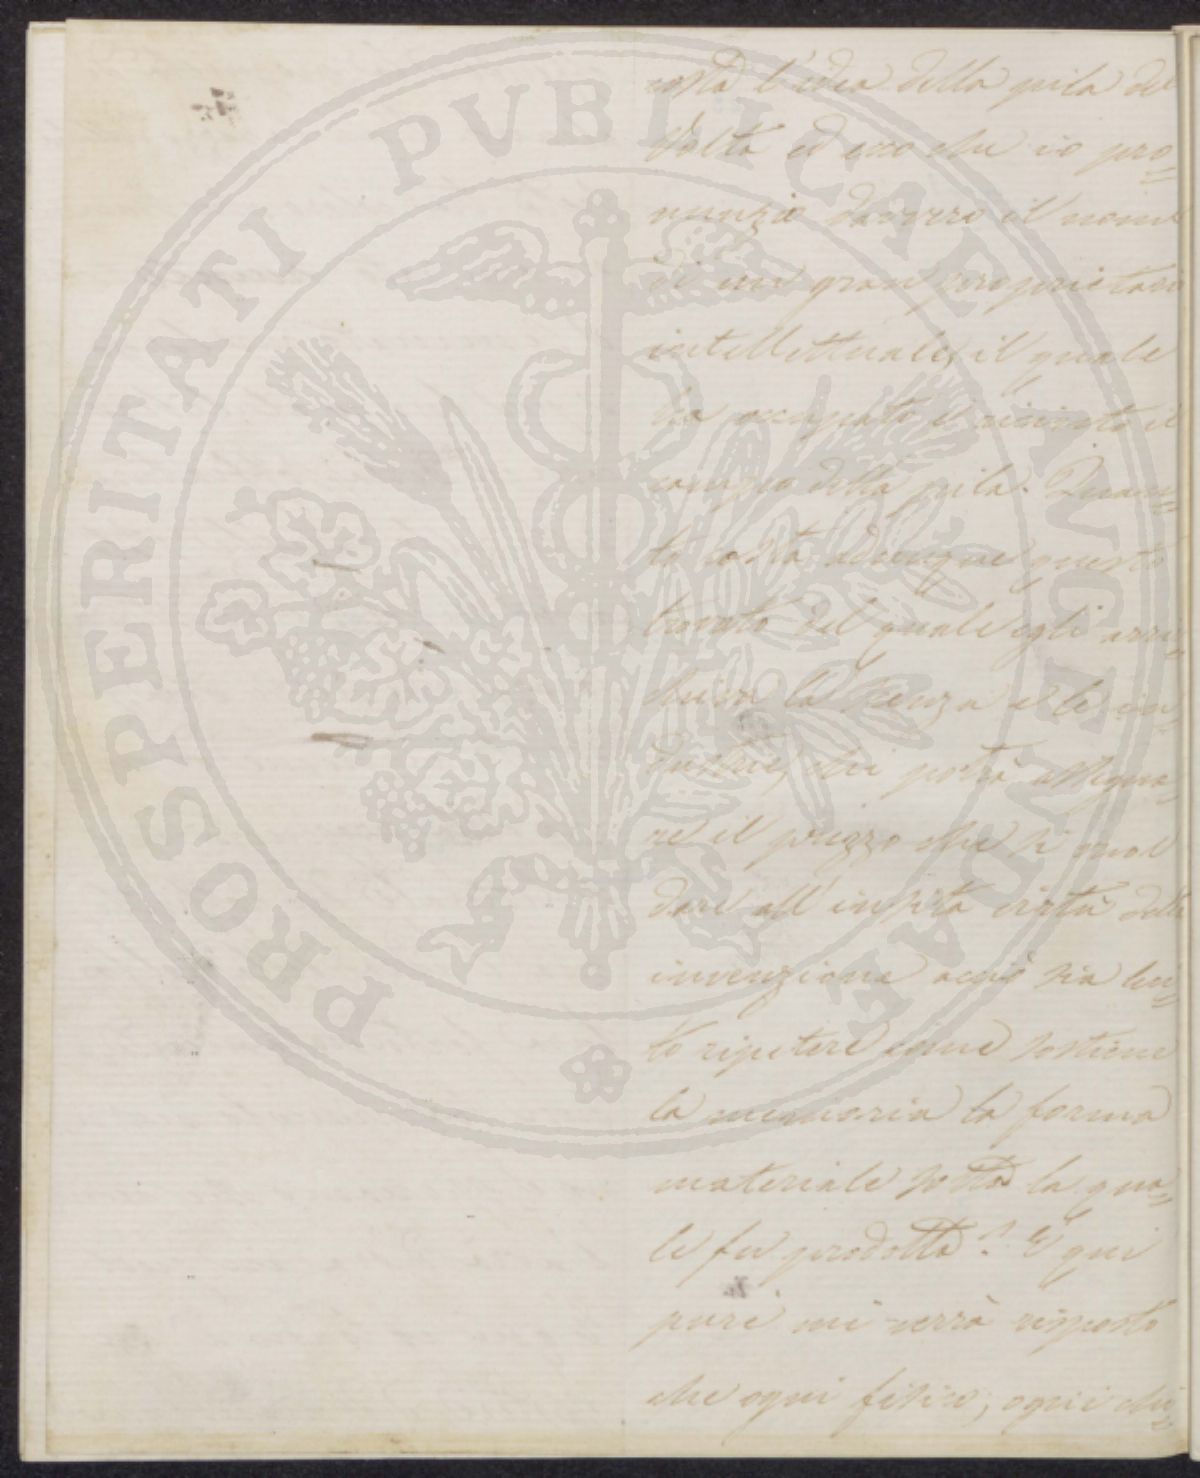 PROSPERITATI PVBLICAE AVGENDAE
costà l'idea della pila del
Volta ed ecco che io pro=
nunzio davvero il nome
di un gran proprietario
intellettuale, il quale
ha occupato e
campo della pila. Quan=
to costa adunque questo
trovato del quale egli arri=
la scienza e le in=
dustrie, chi potrà assegna=
re il prezzo che si vuol
dare all'insita virtù della
invenzione acciò sia
to ripetere come sostiene
la memoria la forma
materiale sotto la qua=
le fu prodotta? E qui
pure mi verrà risposto
che ogni fisico, ogni chi=